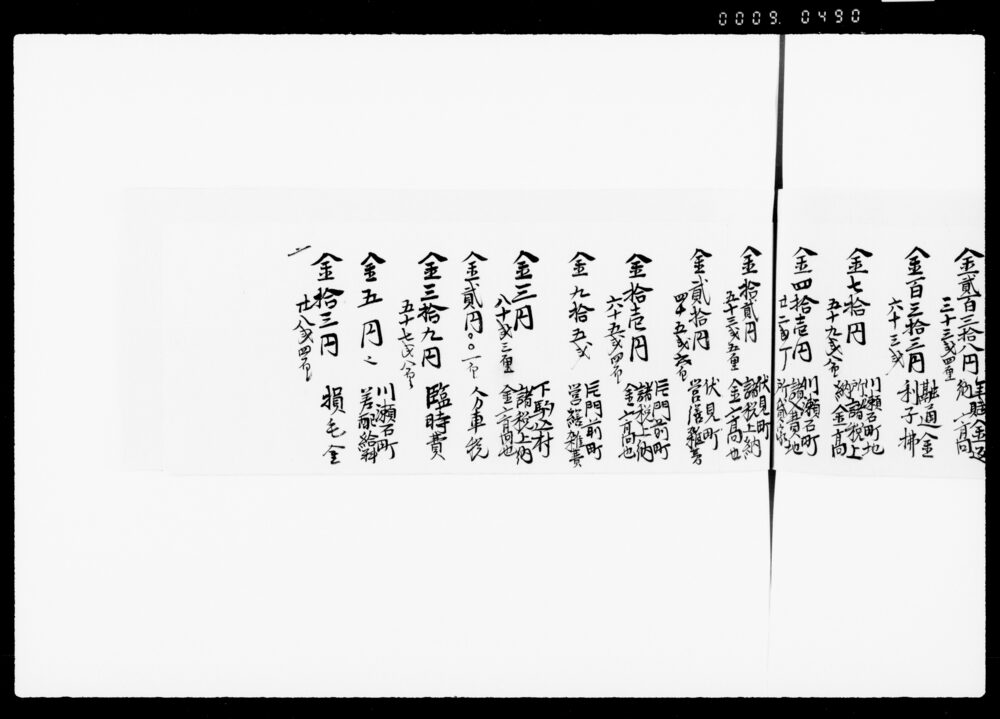 0009. 0490
金貳百三拾八円
三十三戋四厘
年賦金返
納ノ高
金百三拾三円
六十三戋
融通金
利子拂
金七拾円
五十九戋八厘
川瀬石町地
所諸税上
納金高
金四拾壱円
廿二戋
川瀬石町
金拾貳円
五十三戋五厘
伏見町
諸税上納
金高也
金貳拾円
四十五戋六厘
伏見町
営繕雑費
金拾壱円
六十五戋四厘
片門前町
諸税上納
金高也
金九拾五戋
片門前町
営繕雑費
金三円
八十戋三厘
下駒込村
諸税上納
金高也
金貳円〇〇一厘
人力車税
金三拾九円
五十七戋八厘
臨時費
金五円之
川瀬石町
差配給料
金拾三円
廿八戋四厘
損毛金